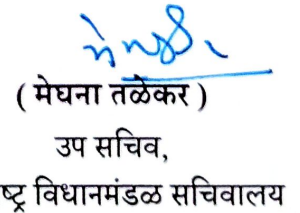 ( मेघना तळेकर )
उप सचिव,
ष्ट्र विधानमंडळ सचिवालय